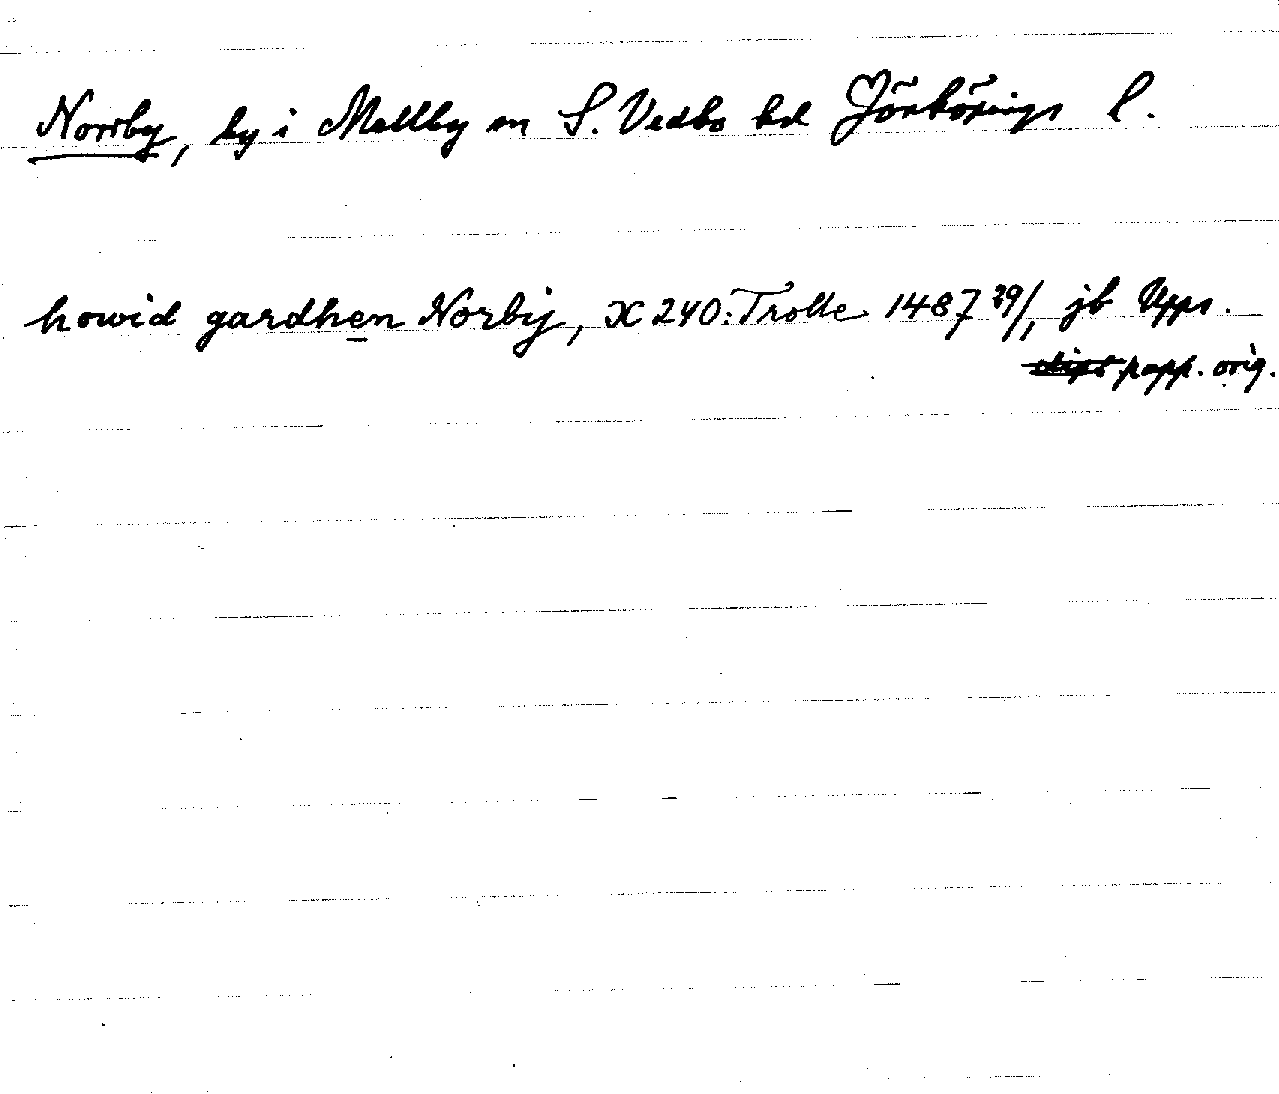 Norrby, by i Mellby sn S. Vedbo hd Jönköpings l.
howid gardhen Norbij, X 240: Trolle 1487 29/1 jb Upps.
papp. orig.